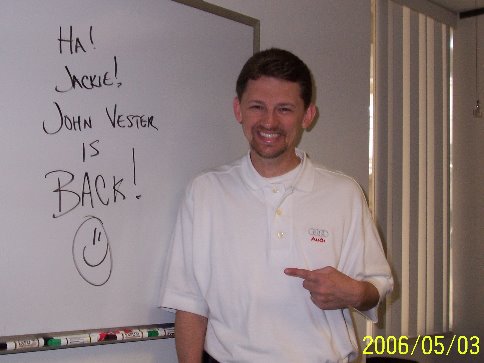 HA!
JACKIE!
JOHN VESTER
IS
BACK!
Audi
2006/05/03